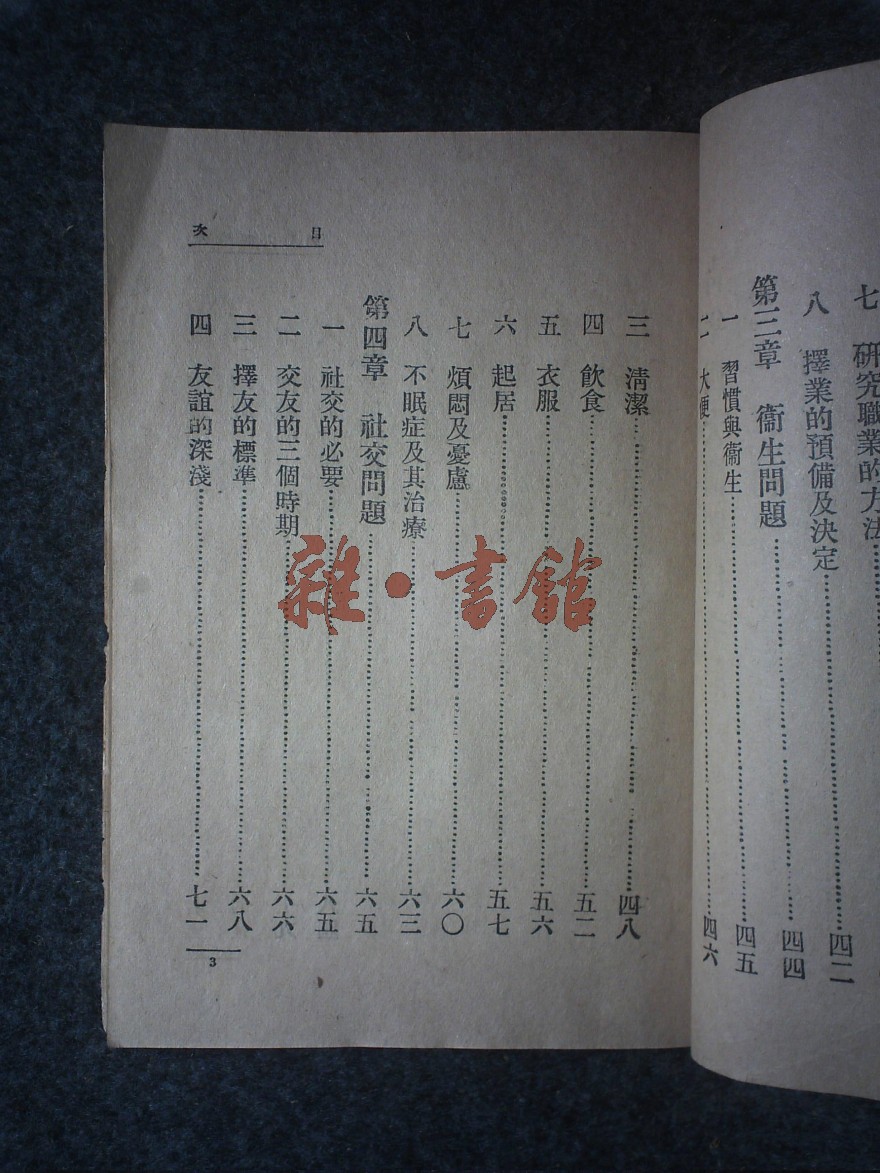 七 研究職業的方法
八 擇業的預備及決定……四二
第三章 衞生問題……四四
一 習慣與衞生……四五
二 大便……四六
目次
三 清潔……四八
四 飲食……五二
五 衣服……五六
六 起居……五七
七 煩悶及憂慮……六〇
八 不眠症及其治療……六三
第四章 社交問題……六五
一 社交的必要……六五
二 交友的三個時期……六六
三 擇友的標準……六八
四 友誼的深淺……七一
3
雜·書館